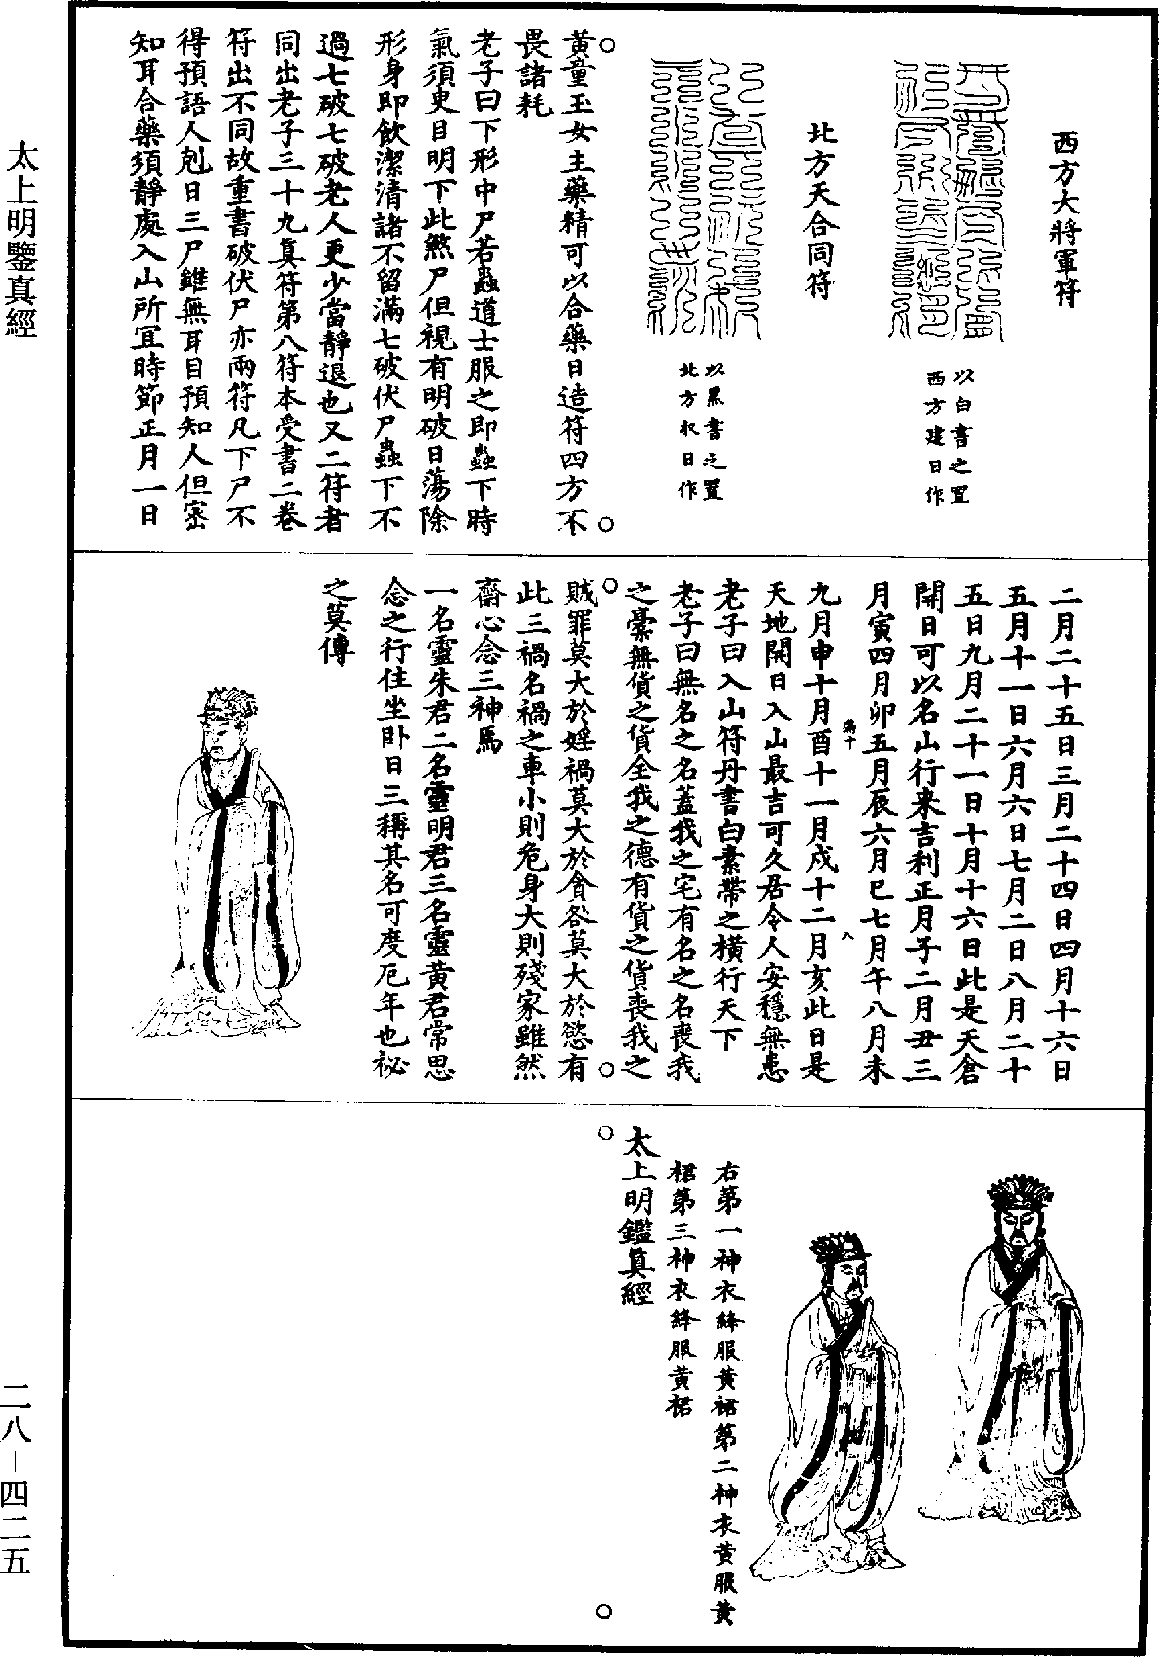 西方大將軍符
以白書之置
西方建日作
北方天合同符
以黑書之置
北方收日作
黃童玉女主藥精可以合藥日造符四方不
畏諸耗
老子曰下形中尸若蟲道士服之即蟲下時
氣須臾目明下此煞尸但視有明破日蕩除
形身即飲潔清諸不留滿七破伏尸蟲下不
過七破七破老人更少當靜退也又二符者
同出老子三十九真符第八符本受書二卷
符出不同故重書破伏尸亦兩符凡下尸不
得預語人剋日三尸雖無耳目預知人但密
知耳合藥須靜處入山所宜時節正月一日
二月二十五日三月二十四日四月十六日
五月十一日六月六日七月二日八月二十
五日九月二十一日十月十六日此是天倉
開日可以名山行来吉利正月子二月丑三
月寅四月卯五月辰六月巳七月午八月未
滿十 八
九月申十月酉十一月戌十二月亥此日是
天地開日入山最吉可久居令人安穩無患
老子曰入山符丹書白素帶之橫行天下
老子曰無名之名蓋我之宅有名之名喪我
之橐無貨之貨全我之德有貨之貨喪我之
賊罪莫大於婬禍莫大於貪咎莫大於慾有
此三禍名禍之車小則危身大則殘家雖然
齋心念三神焉
一名靈朱君二名靈明君三名靈黃君常思
念之行住坐卧日三稱其名可度厄年也祕
之莫傳
右第一神衣絳服黃裙第二神衣黃服黃
裙第三神衣絳服黃裙
太上明鑑真經
太上明鑒真經
二八－四二五